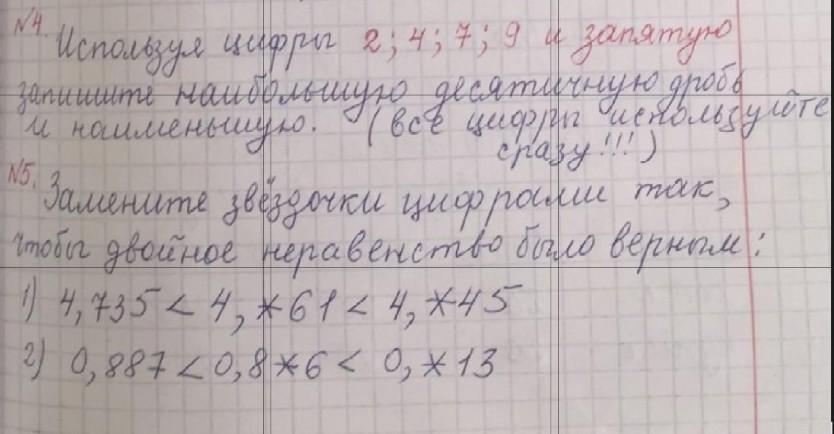 №4. Используя цифры 2; 4; 7; 9 и запятую
запишите наибольшую десятичную дробь
и наименьшую. (все цифры используйте
сразу!!!)
№5. Замените звёздочки цифрами так,
чтобы двойное неравенство было верным:
1) 4,735 < 4,*61 < 4,*45
2) 0,887 < 0,8*6 < 0,*13